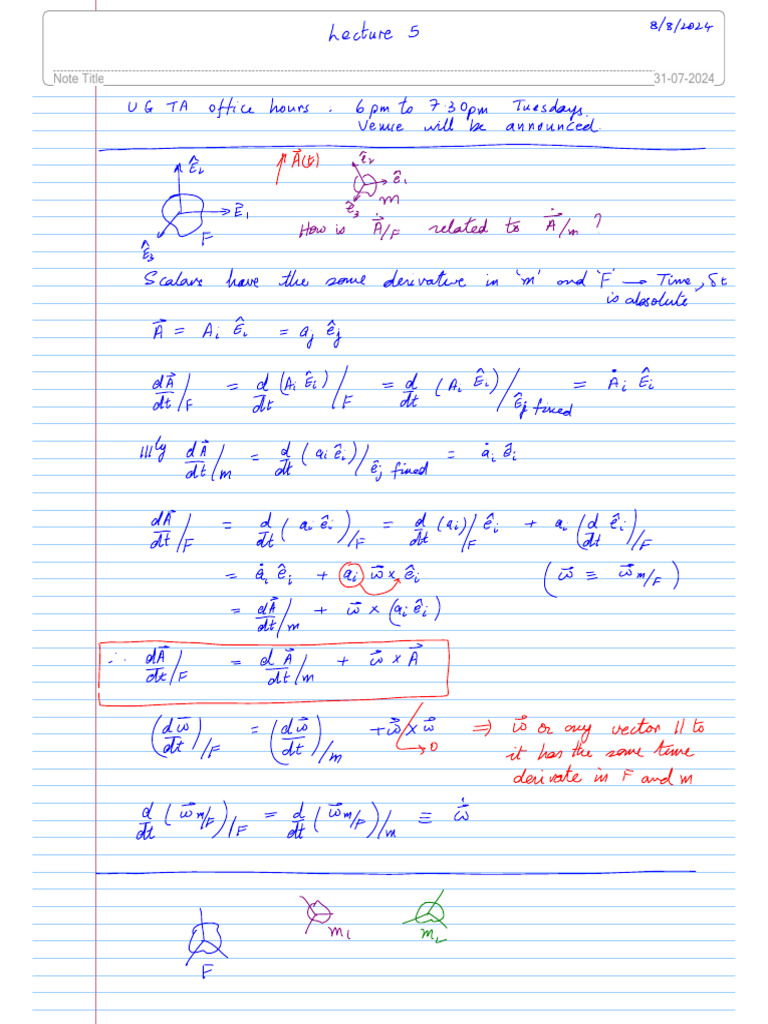 Lecture 5
8/8/2024
Note Title
31-07-2024
UG TA office hours. 6pm to 7.30pm Tuesdays.
Venue will be announced.
Ê₂ Ê₁ Ê₃ F
A⃗(t)
ê₂ ê₁ ê₃ m
How is A⃗̇/F related to A⃗̇/m ?
Scalars have the same derivative in 'm' and 'F' → Time, δt
is absolute
A⃗ = Aᵢ Êᵢ = aⱼ êⱼ
dA⃗/dt/F = d/dt (Aᵢ Êᵢ)/F = d/dt (Aᵢ Êᵢ)/Êⱼ fixed = Ȧᵢ Êᵢ
|||ly dA⃗/dt/m = d/dt (aᵢ êᵢ)/êⱼ fixed = ȧᵢ êᵢ
dA⃗/dt/F = d/dt (aᵢ êᵢ)/F = d/dt (aᵢ)/F êᵢ + aᵢ (d/dt êᵢ)/F
= ȧᵢ êᵢ + aᵢ ω⃗ × êᵢ (ω⃗ ≡ ω⃗m/F)
= dA⃗/dt/m + ω⃗ × (aᵢ êᵢ)
∴ dA⃗/dt/F = dA⃗/dt/m + ω⃗ × A⃗
(dω⃗/dt)/F = (dω⃗/dt)/m + ω⃗ × ω⃗ → 0 ⇒ ω⃗ or any vector || to
it has the same time
derivate in F and m
d/dt (ω⃗m/F)/F = d/dt (ω⃗m/F)/m ≡ ω⃗̇
F m₁ m₂